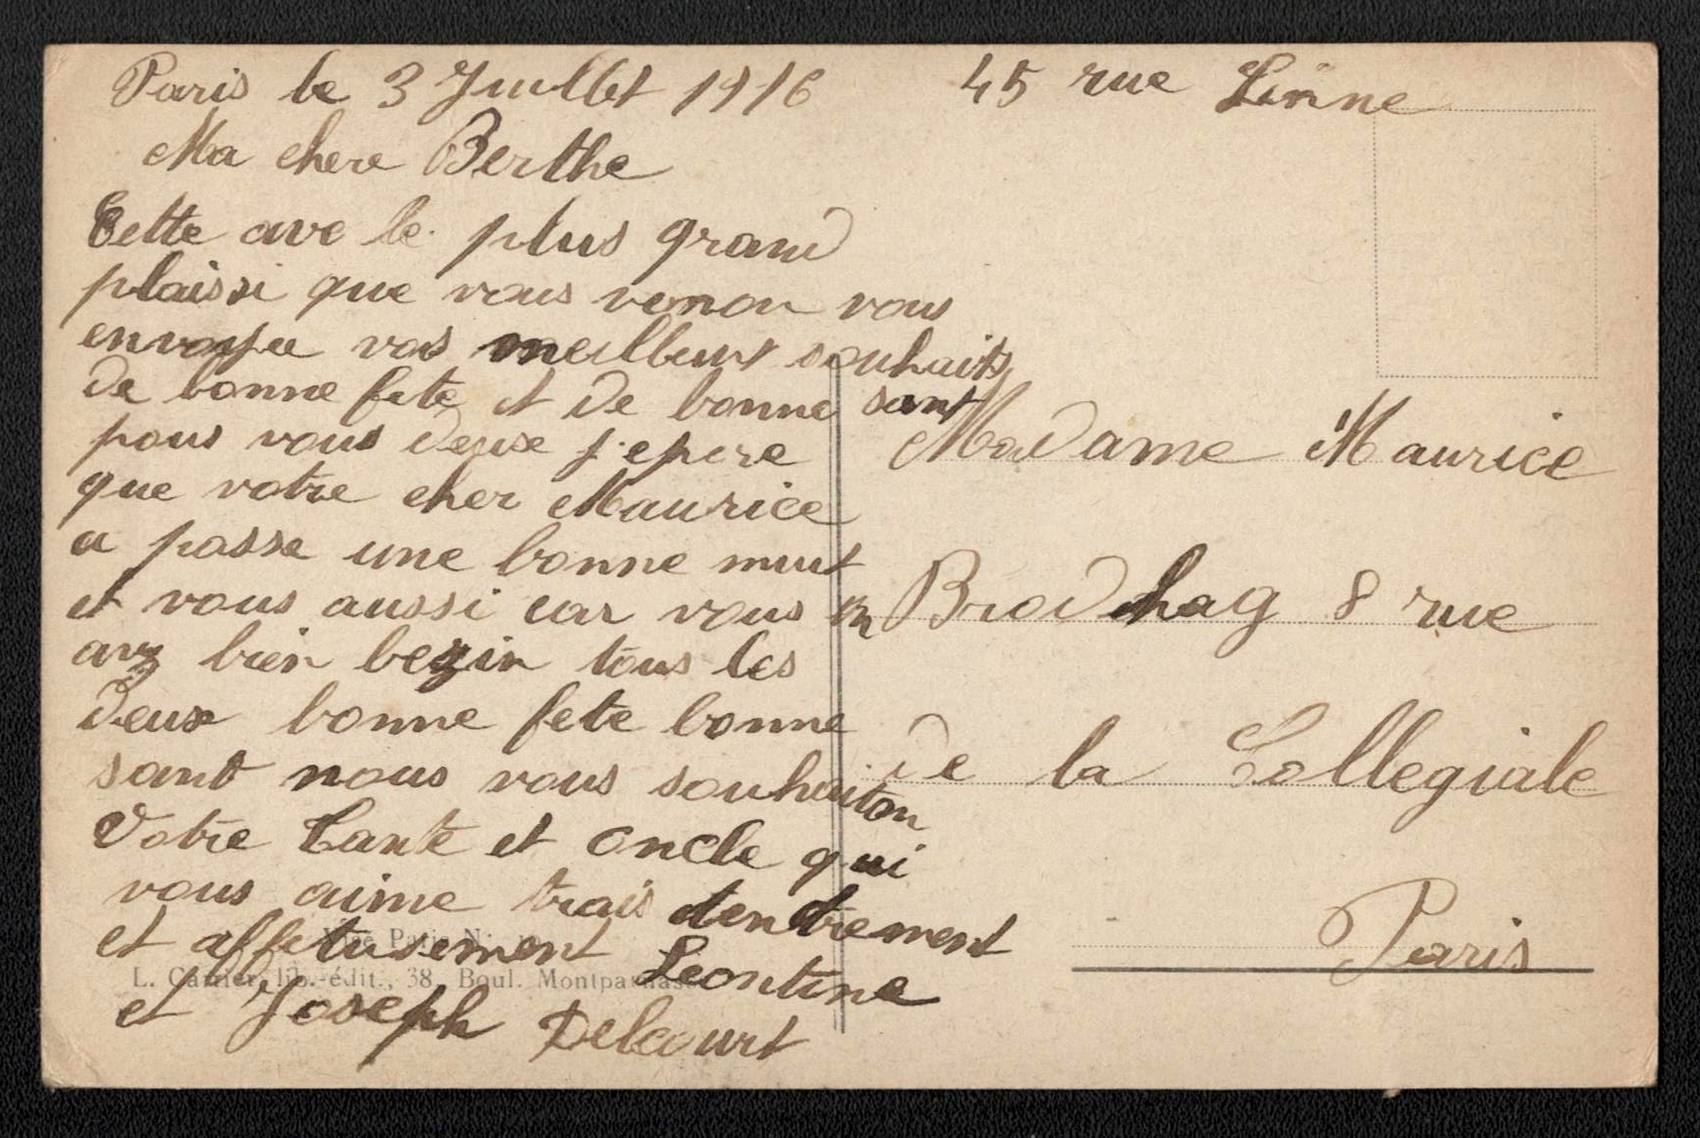 Paris le 3 Juillet 1916
45 rue Linne
Ma chere Berthe
Cette ave le plus grand
plaissi que vous venon vous
envoyee vos meilleurs souhaits
de bonne fete et de bonne sant
pous vous deuxe j'epere
que votre cher Maurice
a passe une bonne nuit
et vous aussi car vous en
avez bien bezin tous les
deux bonne fete bonne
sant nous vous souhaiton
Votre Tante et oncle qui
vous aime trais tendrement
et affetusement Leontine
et Joseph Delcourt
Madame Maurice
Brodhag 8 rue
de la Collegiale
Paris
Paris
lib.-édit., 38, Boul. Montparnasse